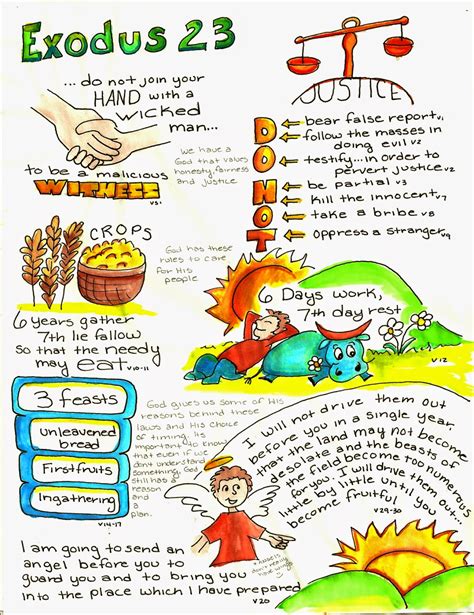 Exodus 23
...do not join your
HAND with a
wicked
man...
to be a malicious
WITNESS
v1
We have a
God that values
honesty, fairness
and justice
JUSTICE
DO NOT
bear false report v1
follow the masses in
doing evil v2
testify... in order to
pervert justice v2
be partial v3
kill the innocent v7
take a bribe v8
oppress a stranger v9
CROPS
God has these
rules to care
for His
people
6 years gather
7th lie fallow
so that the needy
may eat
v10-11
6 Days work,
7th day rest
v12
3 feasts
Unleavened
bread
Firstfruits
Ingathering
v14-17
God gives us some of His
reasons behind these
laws and His choice
of timing. Its
important to know
that even if we
don't understand
something, God
still has a
reason
and
a
plan.
I will not drive them out
before you in a single year
that the land may not become
desolate and the beasts of
the field become too numerous
for you. I will drive them out
little by little until you
become fruitful...
v29-30
I am going to send an
angel before you to
guard you and to bring you
into the place which I have prepared
v20
angels
don't really
have wings